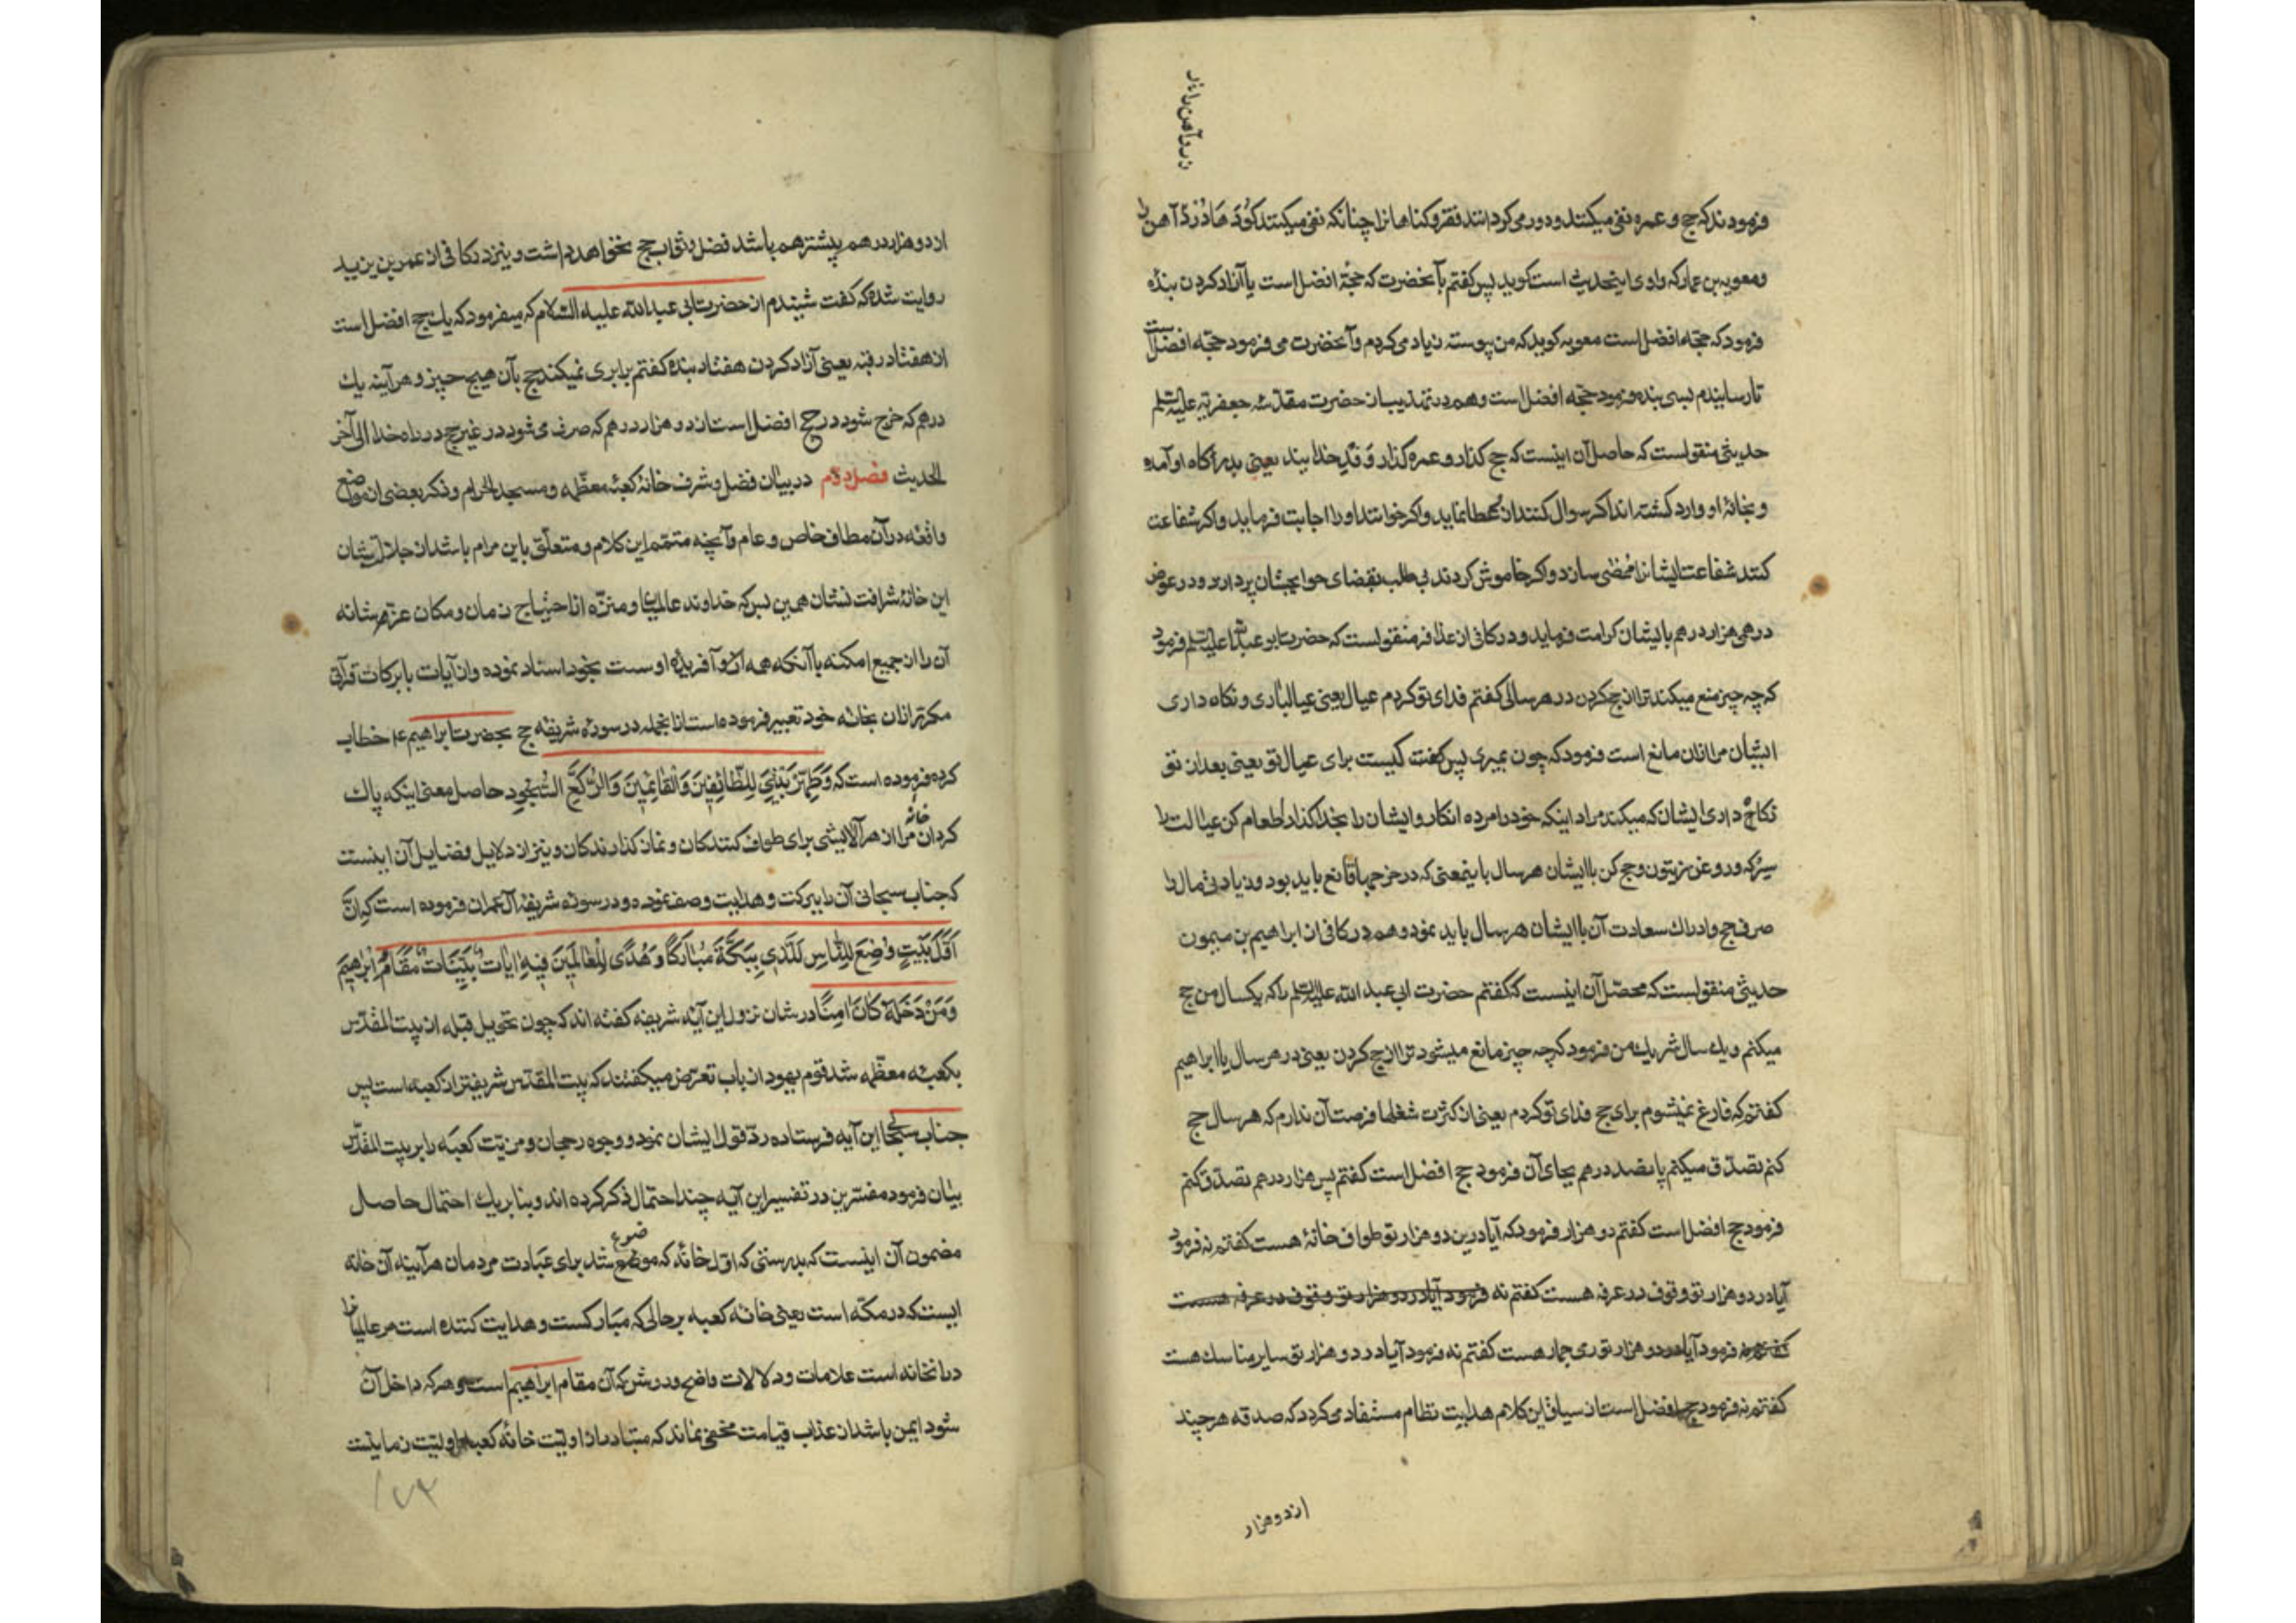 زر و آهن را نار
فرمودند که حج و عمره نفی میکنند و دور می کردانند فقر و کناهانرا چنانکه نفی میکنند کوُدَهَا دُر زدْ آهن را
ومعویه بن عمار که راوی اینحدیث است کوید پس کفتم بآنحضرت که حجّهٔ افضل است یا آزاد کردن بنده
فرمود که حجّه افضل است معویه کوید که من پیوسته زیاد می کردم وآنحضرت می فرمود حجّه افضل است
تا رسانیدم بسی بنده فرمود حجّه افضل است وهم در تهذیب از حضرت مقدّسه جعفریّه علیه السّلم
حدیثی منقولست که حاصل آن اینست که حج کذار و عمره کذار وَفْدِ خدایند یعنی بدرکاه او آمده
و بخانهٔ او وارد کشته اند اکر سوال کنند از و عطا نماید و اکر خوانند او را اجابت فرماید و اکر شفاعت
کنند شفاعت ایشانرا ممضی سازد و اکر خاموش کردند بی طلب بقضای حوایجشان پردازد و در عوض
درهمی هزار درهم بایشان کرامت فرماید و در کافی از عذافر منقولست که حضرت ابو عبدالله علیه السّلم فرمود
که چه چیز منع میکند ترا از حج کردن در هر سالی کفتم فدای تو کردم عیال یعنی عیالباری و نکاه داری
ایشان مرا از ان مانع است فرمود که چون بمیری پس کفت کیست برای عیال تو یعنی بعد از تو
نکاح داری ایشان که میکند مراد اینکه خود را مرده انکار و ایشان را بخدا کذار اطعام کن عیالت را
سرکه و روغن زیتون و حج کن با ایشان هر سال باینمعنی که در خرجها قانع باید بود و زیادتی مال را
صرف حج و ادراک سعادت آن با ایشان هر سال باید نمود و هم در کافی از ابراهیم بن میمون
حدیثی منقولست که محصّل آن اینست که کفتم حضرت ابی عبد الله علیه السّلم را که یکسال من حج
میکنم و یک سال شریک من فرمود که چه چیز مانع میشود ترا از حج کردن یعنی در هر سال یا ابراهیم
کفتم که فارغ نمیشوم برای حج فدای تو کردم یعنی از کثرت شغلها فرصت آن ندارم که هر سال حج
کنم تصدّق میکنم پانصد درهم بجای آن فرمود حج افضل است کفتم پس هزار درهم تصدّق کنم
فرمود حج افضل است کفتم دو هزار فرمود که آیا درین دو هزار تو طواف خانهٔ هست کفتم نه فرمود
آیا در دو هزار تو وقوف در عرفه هست کفتم نه فرمود آیا در دو هزار تو وقوف در عرفه هست
کفتم نه فرمود آیا در دو هزار تو رمی جمار هست کفتم نه فرمود آیا در دو هزار تو سایر مناسک هست
کفتم نه فرمود حج افضل است از سیاق این کلام هدایت نظام مستفاد می کردد که صدقه هر چند
از دو هزار
از دو هزار درهم بیشتر هم باشد فضل و ثواب حج نخواهد داشت و نیز در کافی از عمر بن یزید
روایت شده که کفت شنیدم از حضرت ابی عبد الله علیه السّلام که میفرمود که یک حج افضل است
از هفتاد رقبه یعنی آزاد کردن هفتاد بنده کفتم برابری نمیکند حج بآن هیچ چیز و هر آینه یک
درهم که خرج شود در حج افضل است از دو هزار درهم که صرف می شود در غیر حج در راه خدا الی آخر
الحدیث فصل دوّم در بیان فضل و شرف خانهٔ کعبهٔ معظّمه و مسجد الحرام و ذکر بعضی از مواضع
واقعه در آن مطاف خاص و عام و آنچه متمّم این کلام و متعلّق باین مرام باشد از جلالت شان
این خانهٔ شرافت نشان همین بس که خداوند عالمیان و منزّه از احتیاج زمان و مکان عزّ شانه
آن را از جمیع امکنه با آنکه همه از و آفریده اوست بخود اسناد نموده و از آیات با برکات قرآنی
مکرّر ازان بخانه خود تعبیر فرموده است ازانجمله در سورهٔ شریفه حج بحضرت ابراهیم ع خطاب
کرده فرموده است که وَطَهِّرْ بَیْتِیَ لِلطَّائِفِینَ وَالْقَائِمِینَ وَالرُّکَّعِ السُّجُودِ حاصل معنی اینکه پاک
کردان خانهٔ مرا از هر آلایشی برای طواف کنندکان و نماز کذارندکان و نیز از دلایل فضایل آن اینست
که جناب سبحانی آن را ببرکت و هدایت وصف نموده و در سوره شریفهٔ آل عمران فرموده است که اِنَّ
اَوَّلَ بَیْتٍ وُضِعَ لِلنَّاسِ لَلَّذِی بِبَکَّةَ مُبَارَکًا وَهُدًی لِلْعَالَمِینَ فِیهِ اٰیَاتٌ بَیِّنَاتٌ مَقَامُ اِبْرٰهِیمَ
وَمَنْ دَخَلَهُ کَانَ اٰمِنًا در شان نزول این آیهٔ شریفه کفته اند که چون تحویل قبله از بیت المقدّس
بکعبهٔ معظّمه شد قوم یهود از باب تعرّض میکفتند که بیت المقدّس شریفتر از کعبه است پس
جناب سبحانی این آیه فرستاده ردّ قول ایشان نمود و وجوه رجحان و مزیّت کعبه را بر بیت المقدّس
بیان فرمود مفسّرین در تفسیر این آیه چند احتمال ذکر کرده اند و بنا بر یک احتمال حاصل
مضمون آن اینست که بدرستی که اوّل خانهٔ که موضوع شد برای عبادت مردمان هر آینه آن خانه
ایست که در مکّه است یعنی خانه کعبه بر حالی که مبارکست و هدایت کننده است مر عالمیانرا
در آنخانه است علامات و دلالات واضح و روشن که آن مقام ابراهیم است و هر که داخل آن
شود ایمن باشد از عذاب قیامت مخفی نماند که متبادر از اولیّت خانهٔ کعبه اولیّت زمانیست
۱۷۴